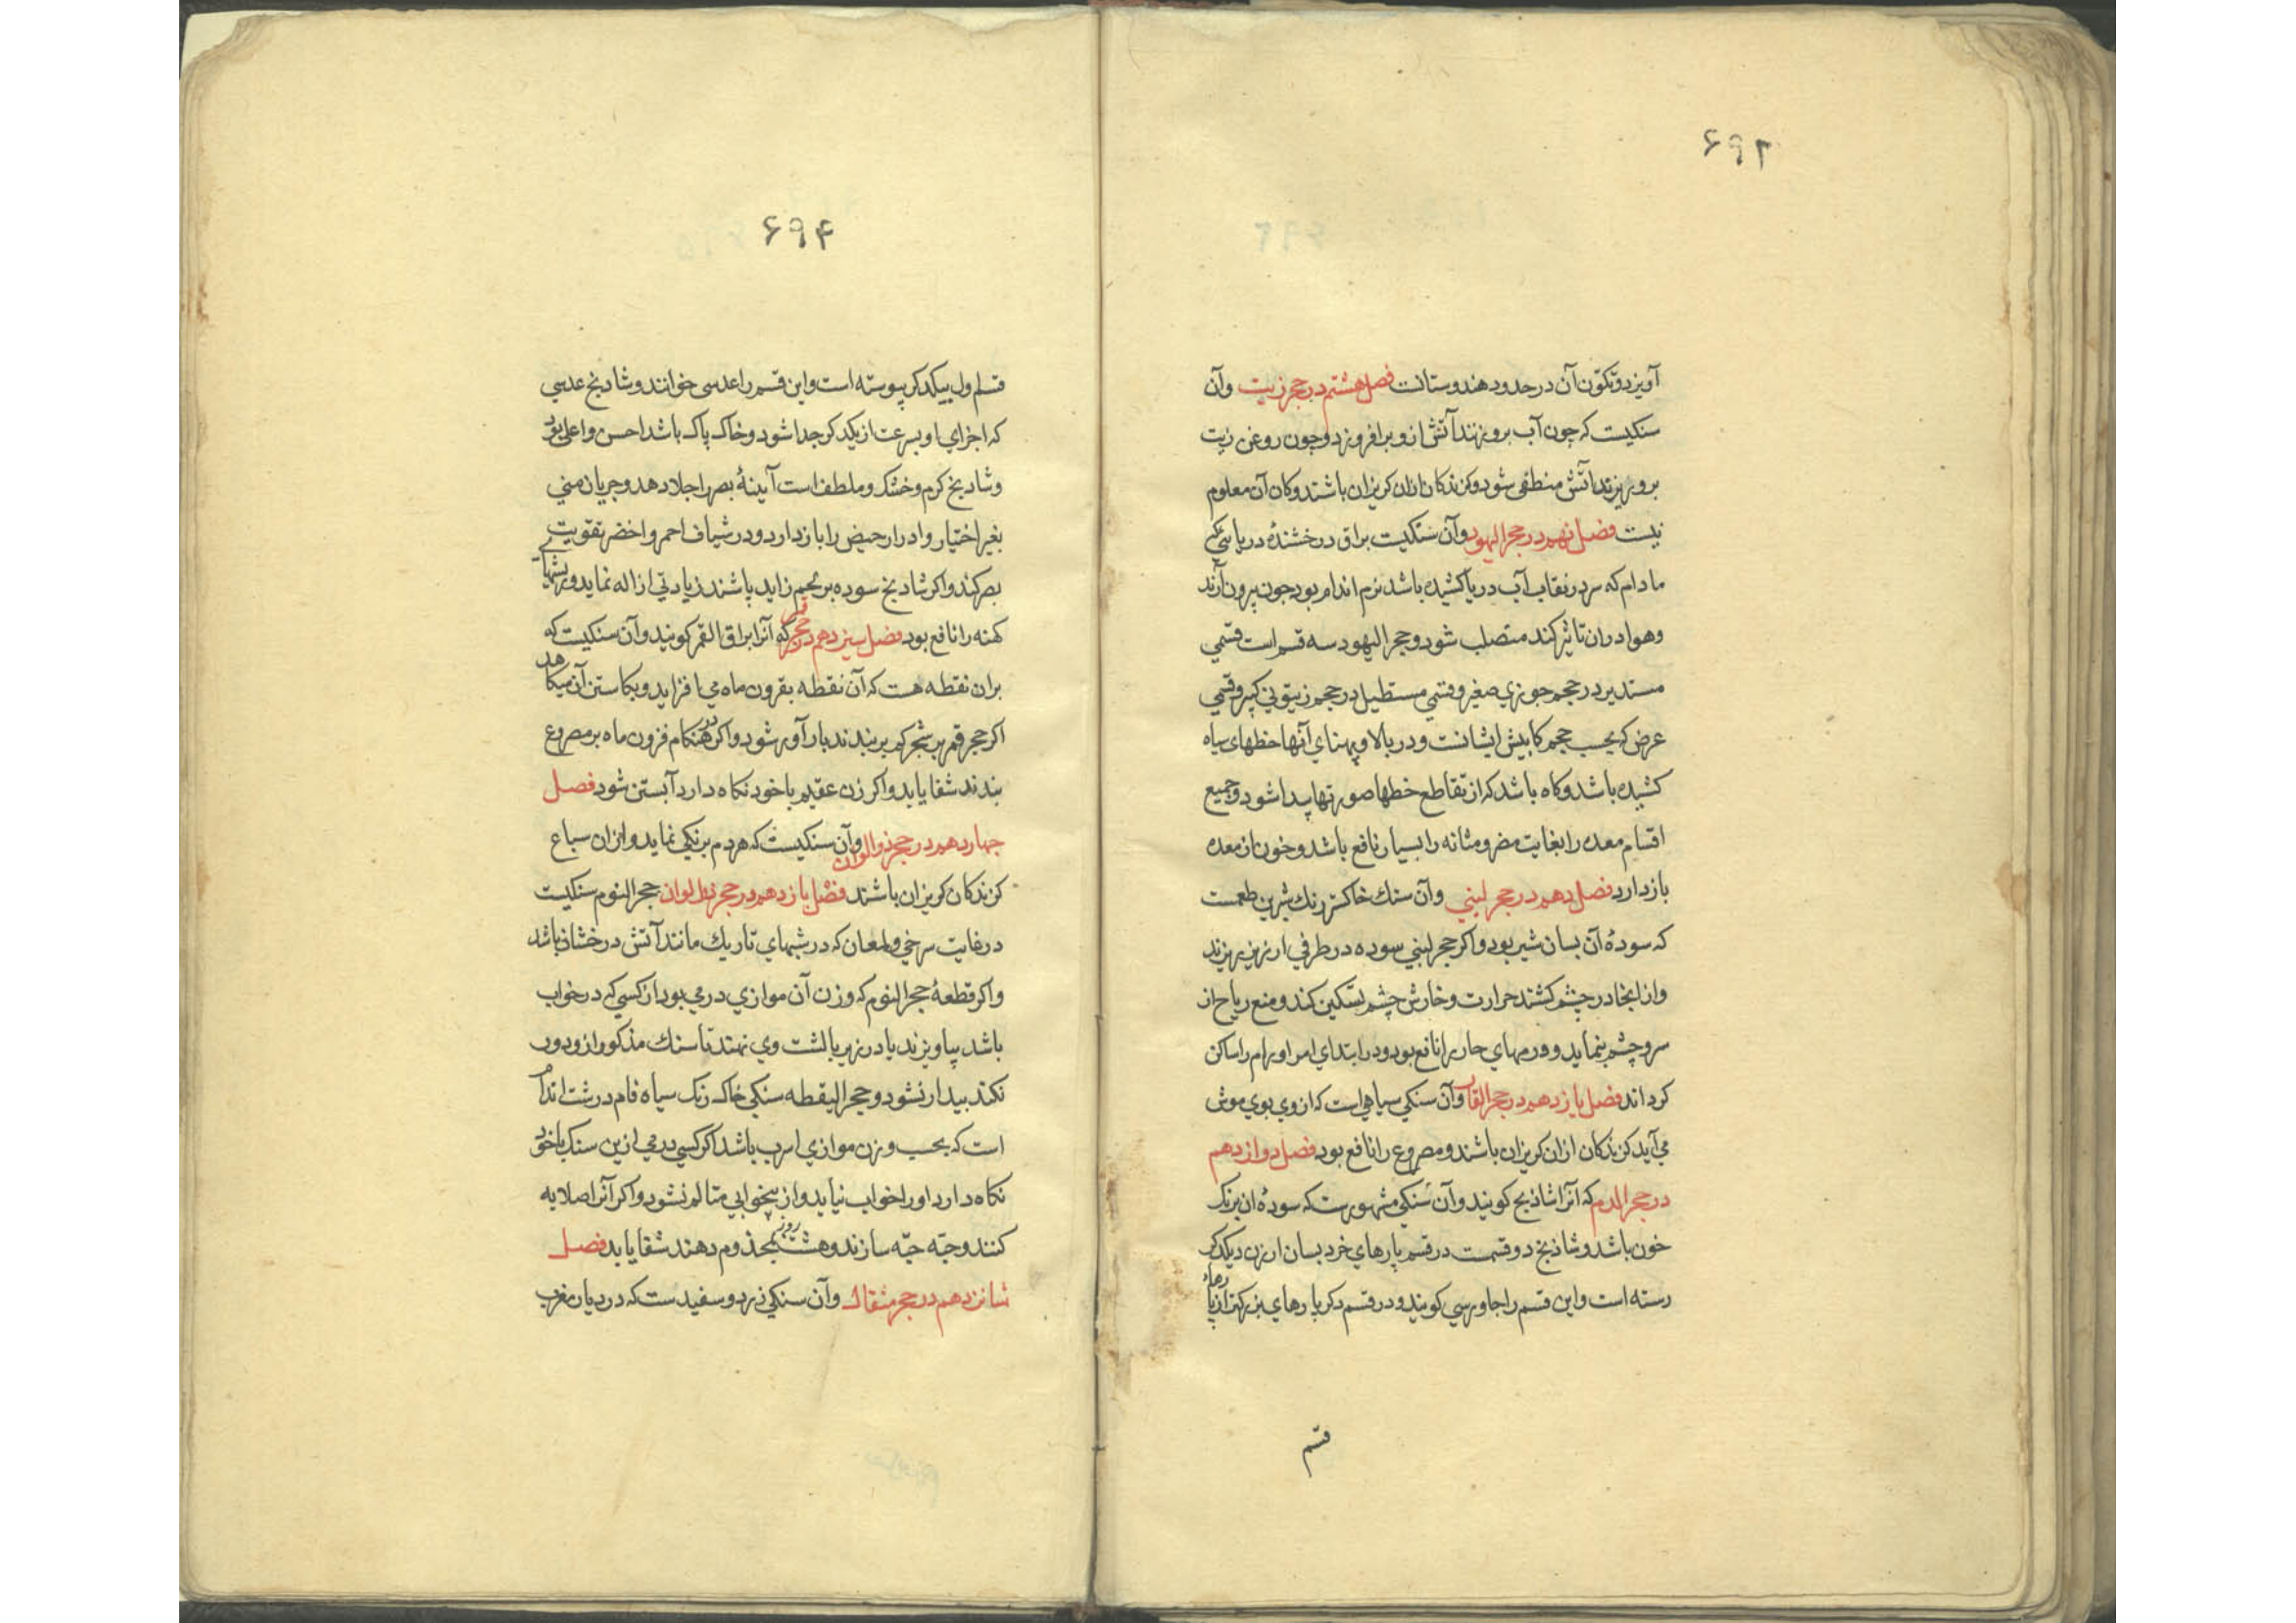 ۶۹۳
آویزد و تکوّن آن در حدود هندوستانست فصل هشتم در حجر زیت وآن
سنکیست که چون آب برو زنند آتش ازو برافروزد وچون روغن زیت
برو ریزند آتش منطفی شود وکزندکان ازان کریزان باشند وکان آن معلوم
نیست فصل نهم در حجر الیهود وآن سنکیست براق درخشندهٔ دریایی که
مادام که سر در نقاب آب دریا کشیده باشد نرم اندام بود چون بیرون آرند
وهوا دران تاثیر کند متصلب شود و حجر الیهود سه قسم است قسمی
مستدیر در حجم جوزی صغیر وقسمی مستطیل در حجم زیتونی کبیر وقسمی
عرض که بحسب حجم کابیش ایشانست ودر بالا وپهنای آنها خطهای سیاه
کشیده باشد وکاه باشد که از تقاطع خطها صورتها پیدا شود وجمیع
اقسام معده را بغایت مضر ومثانه را بسیار نافع باشد وخون از معده
بازدارد فصل دهم در حجر لبنی وآن سنك خاکستر رنك شیرین طعمست
که سودهٔ آن بسان شیر بود واکر حجر لبنی سوده در ظرفی ارزیز ریزند
واز انجا در چشم کشند حرارت وخارش چشم تسکین کند ومنع ریاح از
سر وچشم بنماید وورمهای حار را نافع بود ودر ابتدای امر اورام را ساکن
کرداند فصل یازدهم در حجر الفار وآن سنکی سیاهی است که از وی بوی موش
می آید کزندکان ازان کریزان باشند ومصروع را نافع بود فصل دوازدهم
در حجر الدم که آنرا شاذبج کویند وآن سنکی مشهورست که سودهٔ ان برنک
خون باشد وشاذبج دوقسمت در قسم پارهای خرد بسان ارزن دریکدکر
رسته است واین قسم را جاورسی کویند ودر قسم دکر پارهای بزرکتر از پارهاء
قسم
۶۹۴
قسم اول بیکدکر پیوسته است واین قسم را عدسی خوانند وشادبج عدسی
که اجزای او بسرعت از یکدکر جدا شود وخاک پاک باشد احسن واعلی بود
وشادبج کرم وخشک وملطف است آیینهٔ بصر را جلا دهد وجریان منی
بغیر اختیار وادرار حیض را بازدارد ودر شیاف احمر واخضر تقویت
بصر کند واکر شادبج سوده بر لحم زاید پاشند زیادتی ازاله نماید وریشهای
کهنه را نافع بود فصل سیزدهم در حجر قمر که آنرا براق القمر کویند وآن سنکیست که
بران نقطه هست که آن نقطه بفزون ماه می افزاید وبکاستن آن میکاهد
اکر حجر قمر بر شجر کم بر بندند بارآور شود واکر در هنکام فزون ماه بر مصروع
بندند شفا یابد واکر زن عقیم باخود نکاه دارد آبستن شود فصل
چهاردهم در حجر ذوالوان وآن سنکیست که هر دم برنکی نماید وازان سباع
کزندکان کریزان باشند فصل پازدهم در حجر ذوالوان حجر النوم سنکیست
در غایت سرخی ولمعان که در شبهای تاریك مانند آتش درخشان باشد
واکر قطعهٔ حجر النوم که وزن آن موازی درمی بود از کسی که در خواب
باشد بیاویزند یا در زیر بالشت وی نهند تا سنك مذکور ازو دور
نکند بیدار نشود و حجر الیقظه سنکی خاک رنک سیاه فام درشت اندام
است که بحسب وزن موازی اسرب باشد اکر کسی درمی ازین سنک باخود
نکاه دارد او را خواب نیاید واز بیخوابی متالم نشود واکر آنرا صلایه
کنند وحبّه حبّه سازند وهشت روز بمجذوم دهند شفا یابد فصل
شانزدهم در حجر مثقال وآن سنکی زرد وسفیدست که در دیار مغرب